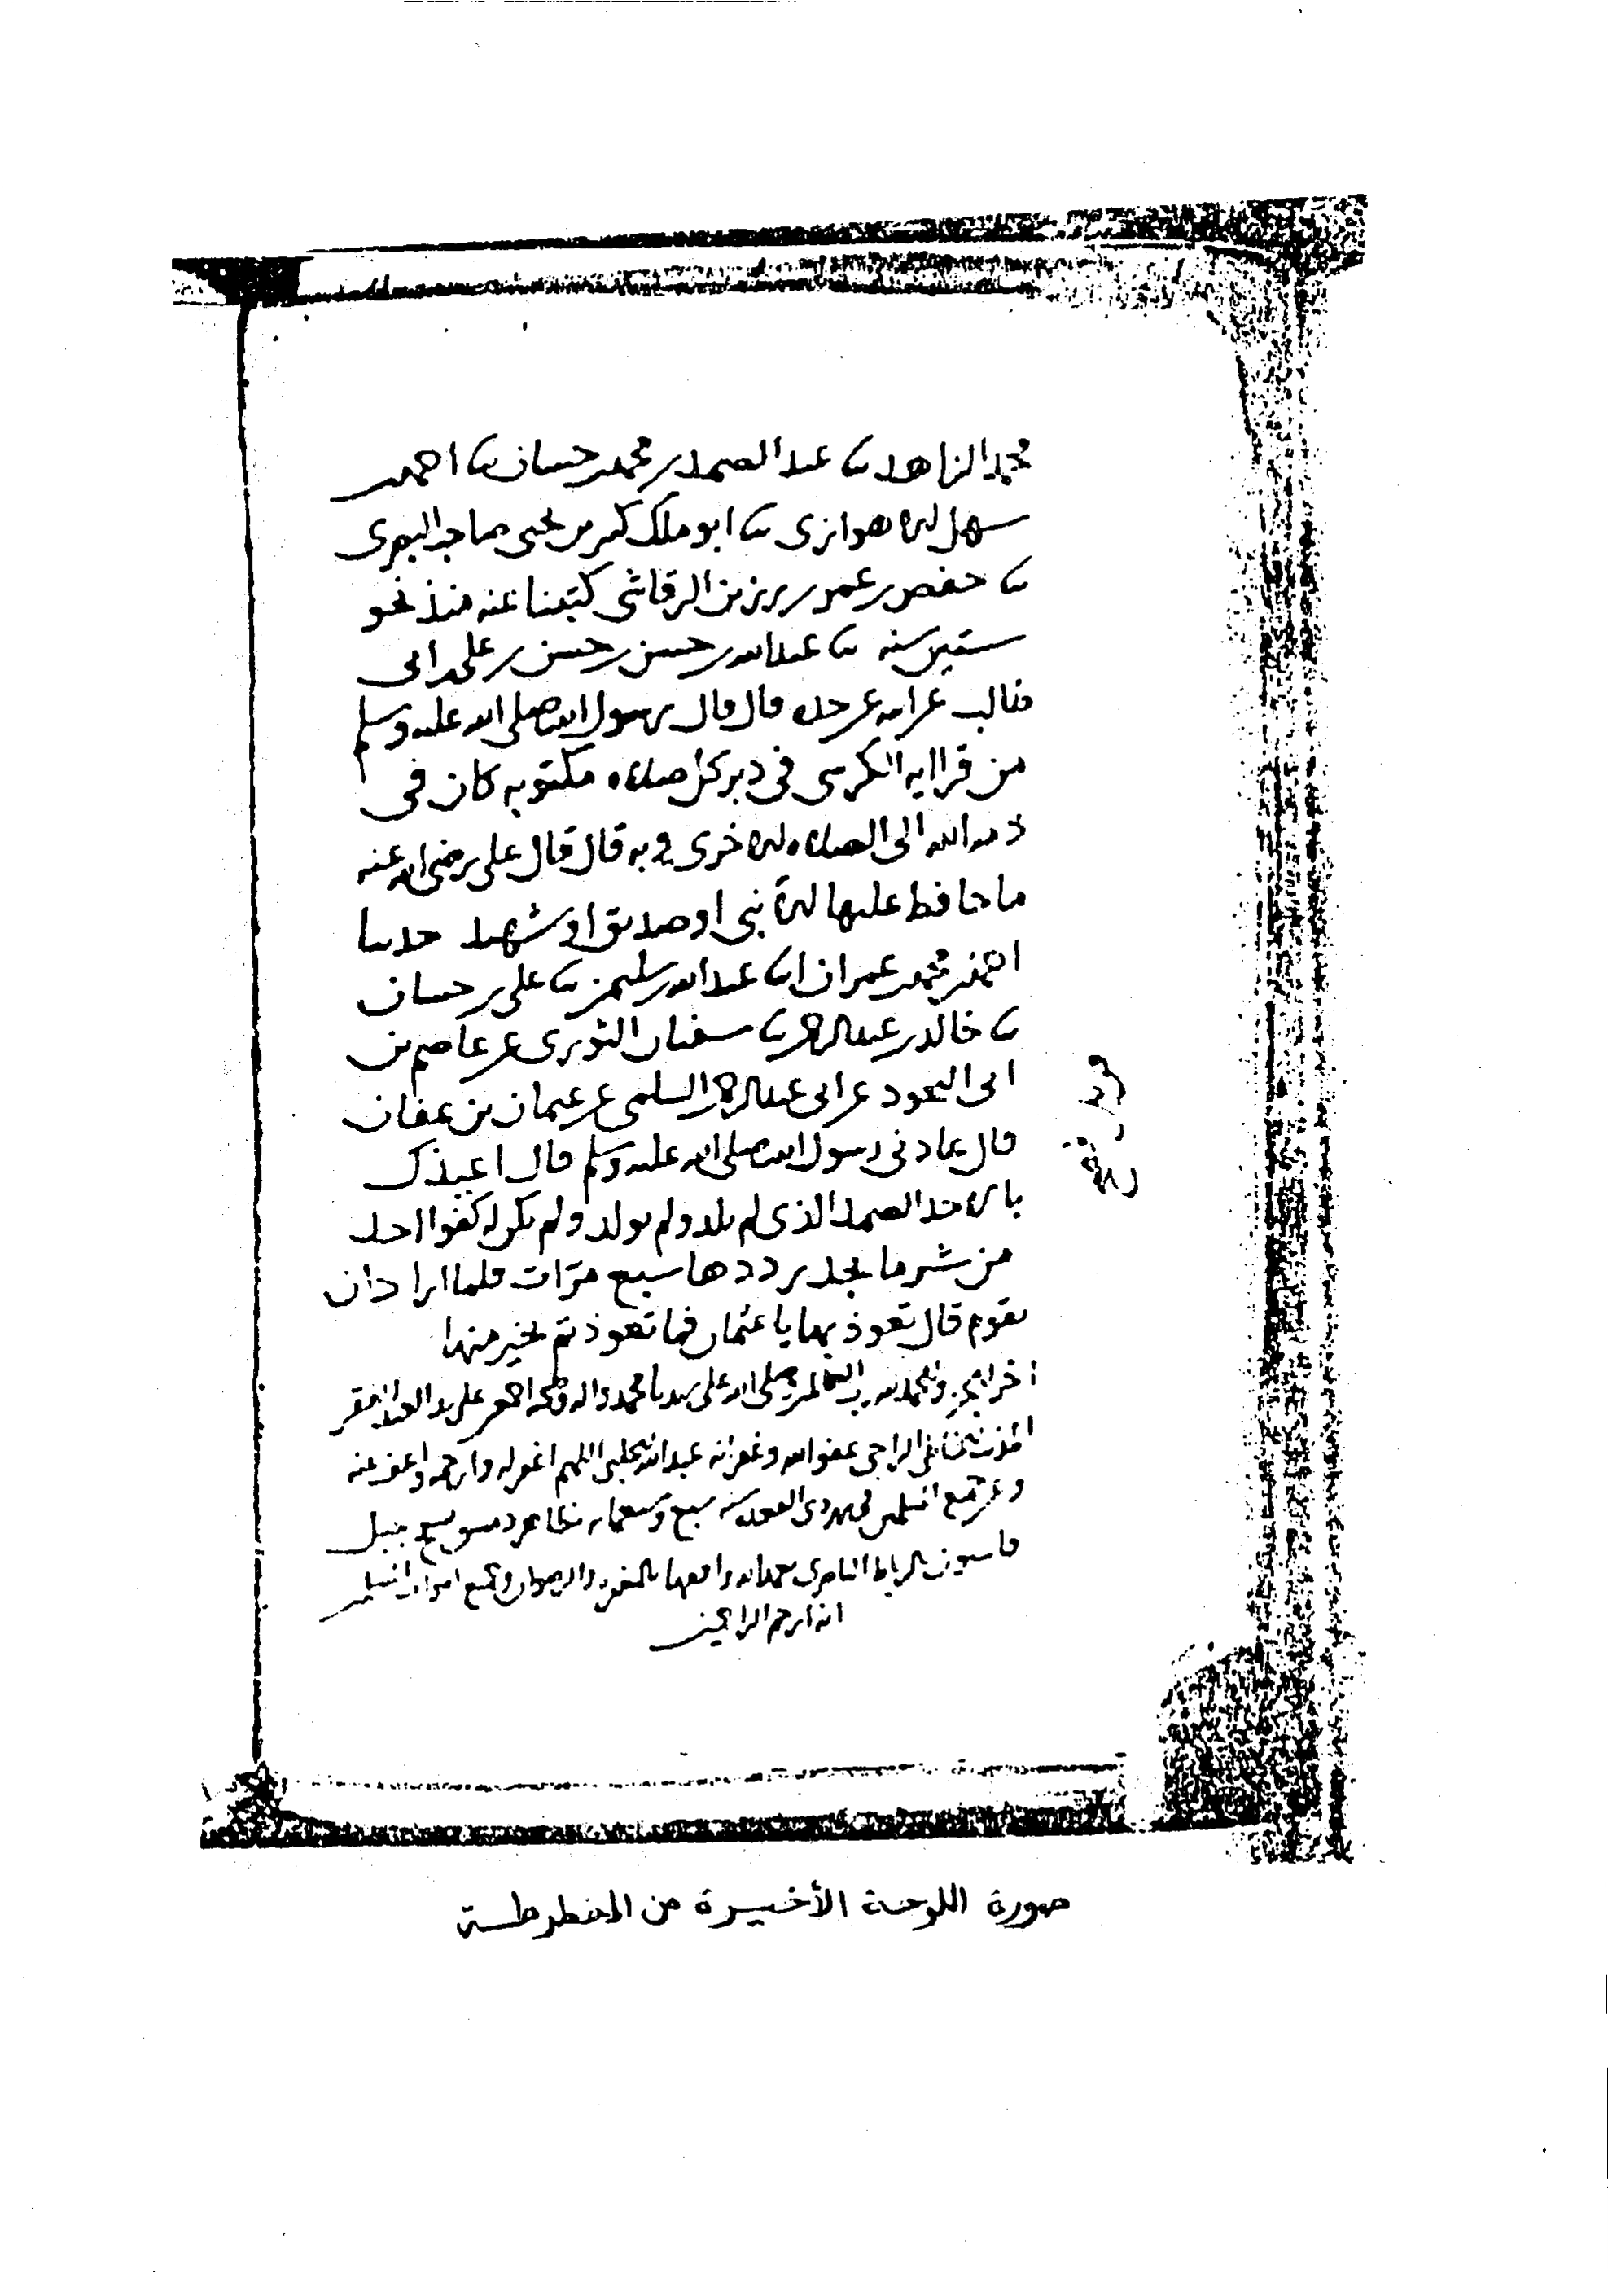 محمد الزاهد ثنا عبد الصمد بن محمد بن حسان ثنا احمد بن
سهل الاهوازى ثنا ابو ملك كثير بن يحيى صاحب البصرى
ثنا حفص بن عمر الرقاشى كتبنا عنه منذ نحو
ستين سنه ثنا عبد الله بن حسن بن حسن بن على بن ابى
طالب عن ابيه عن جده قال قال رسول الله صلى الله عليه وسلم
من قرا ايه الكرسى فى دبر كل صلاه مكتوبه كان فى
ذمه الله الى الصلاه الاخرى وبه قال قال على رضى الله عنه
ما حافظ عليها الا نبى او صديق او شهيد حدثنا
احمد بن محمد بن عمران ثنا عبد الله بن سليمن ثنا على بن حسان
ثنا خالد بن عبد الرحمن ثنا سفيان الثورى عن عاصم بن
ابى النجود عن ابى عبد الرحمن السلمى عن عثمان بن عفان
قال عادنى رسول الله صلى الله عليه وسلم قال اعيذك
بالاحد الصمد الذى لم يلد ولم يولد ولم يكن له كفوا احد
من شر ما تجد يرددها سبع مرّات فلما اراد ان
يقوم قال تعوذ بها يا عثمان فما تعوذتم بخير منها
اخر الجزء والحمد لله رب العالمين وصلى الله على سيدنا محمد واله وصحبه اجمعين على يد العبد الفقير
المذنب الراجى عفو الله وغفرانه عبد الله اللهم اغفر له وارحمه واعف عنه
وعن جميع المسلمين فى شهر ذى القعده سنه سبع وسبعمايه بظاهر دمشق بسفح جبل
قاسيون بالرباط الناصرى بالمغفره والرضوان وجميع اموات المسلمين
انه ارحم الراحمين
صورة اللوحة الأخيرة من المخطوطة